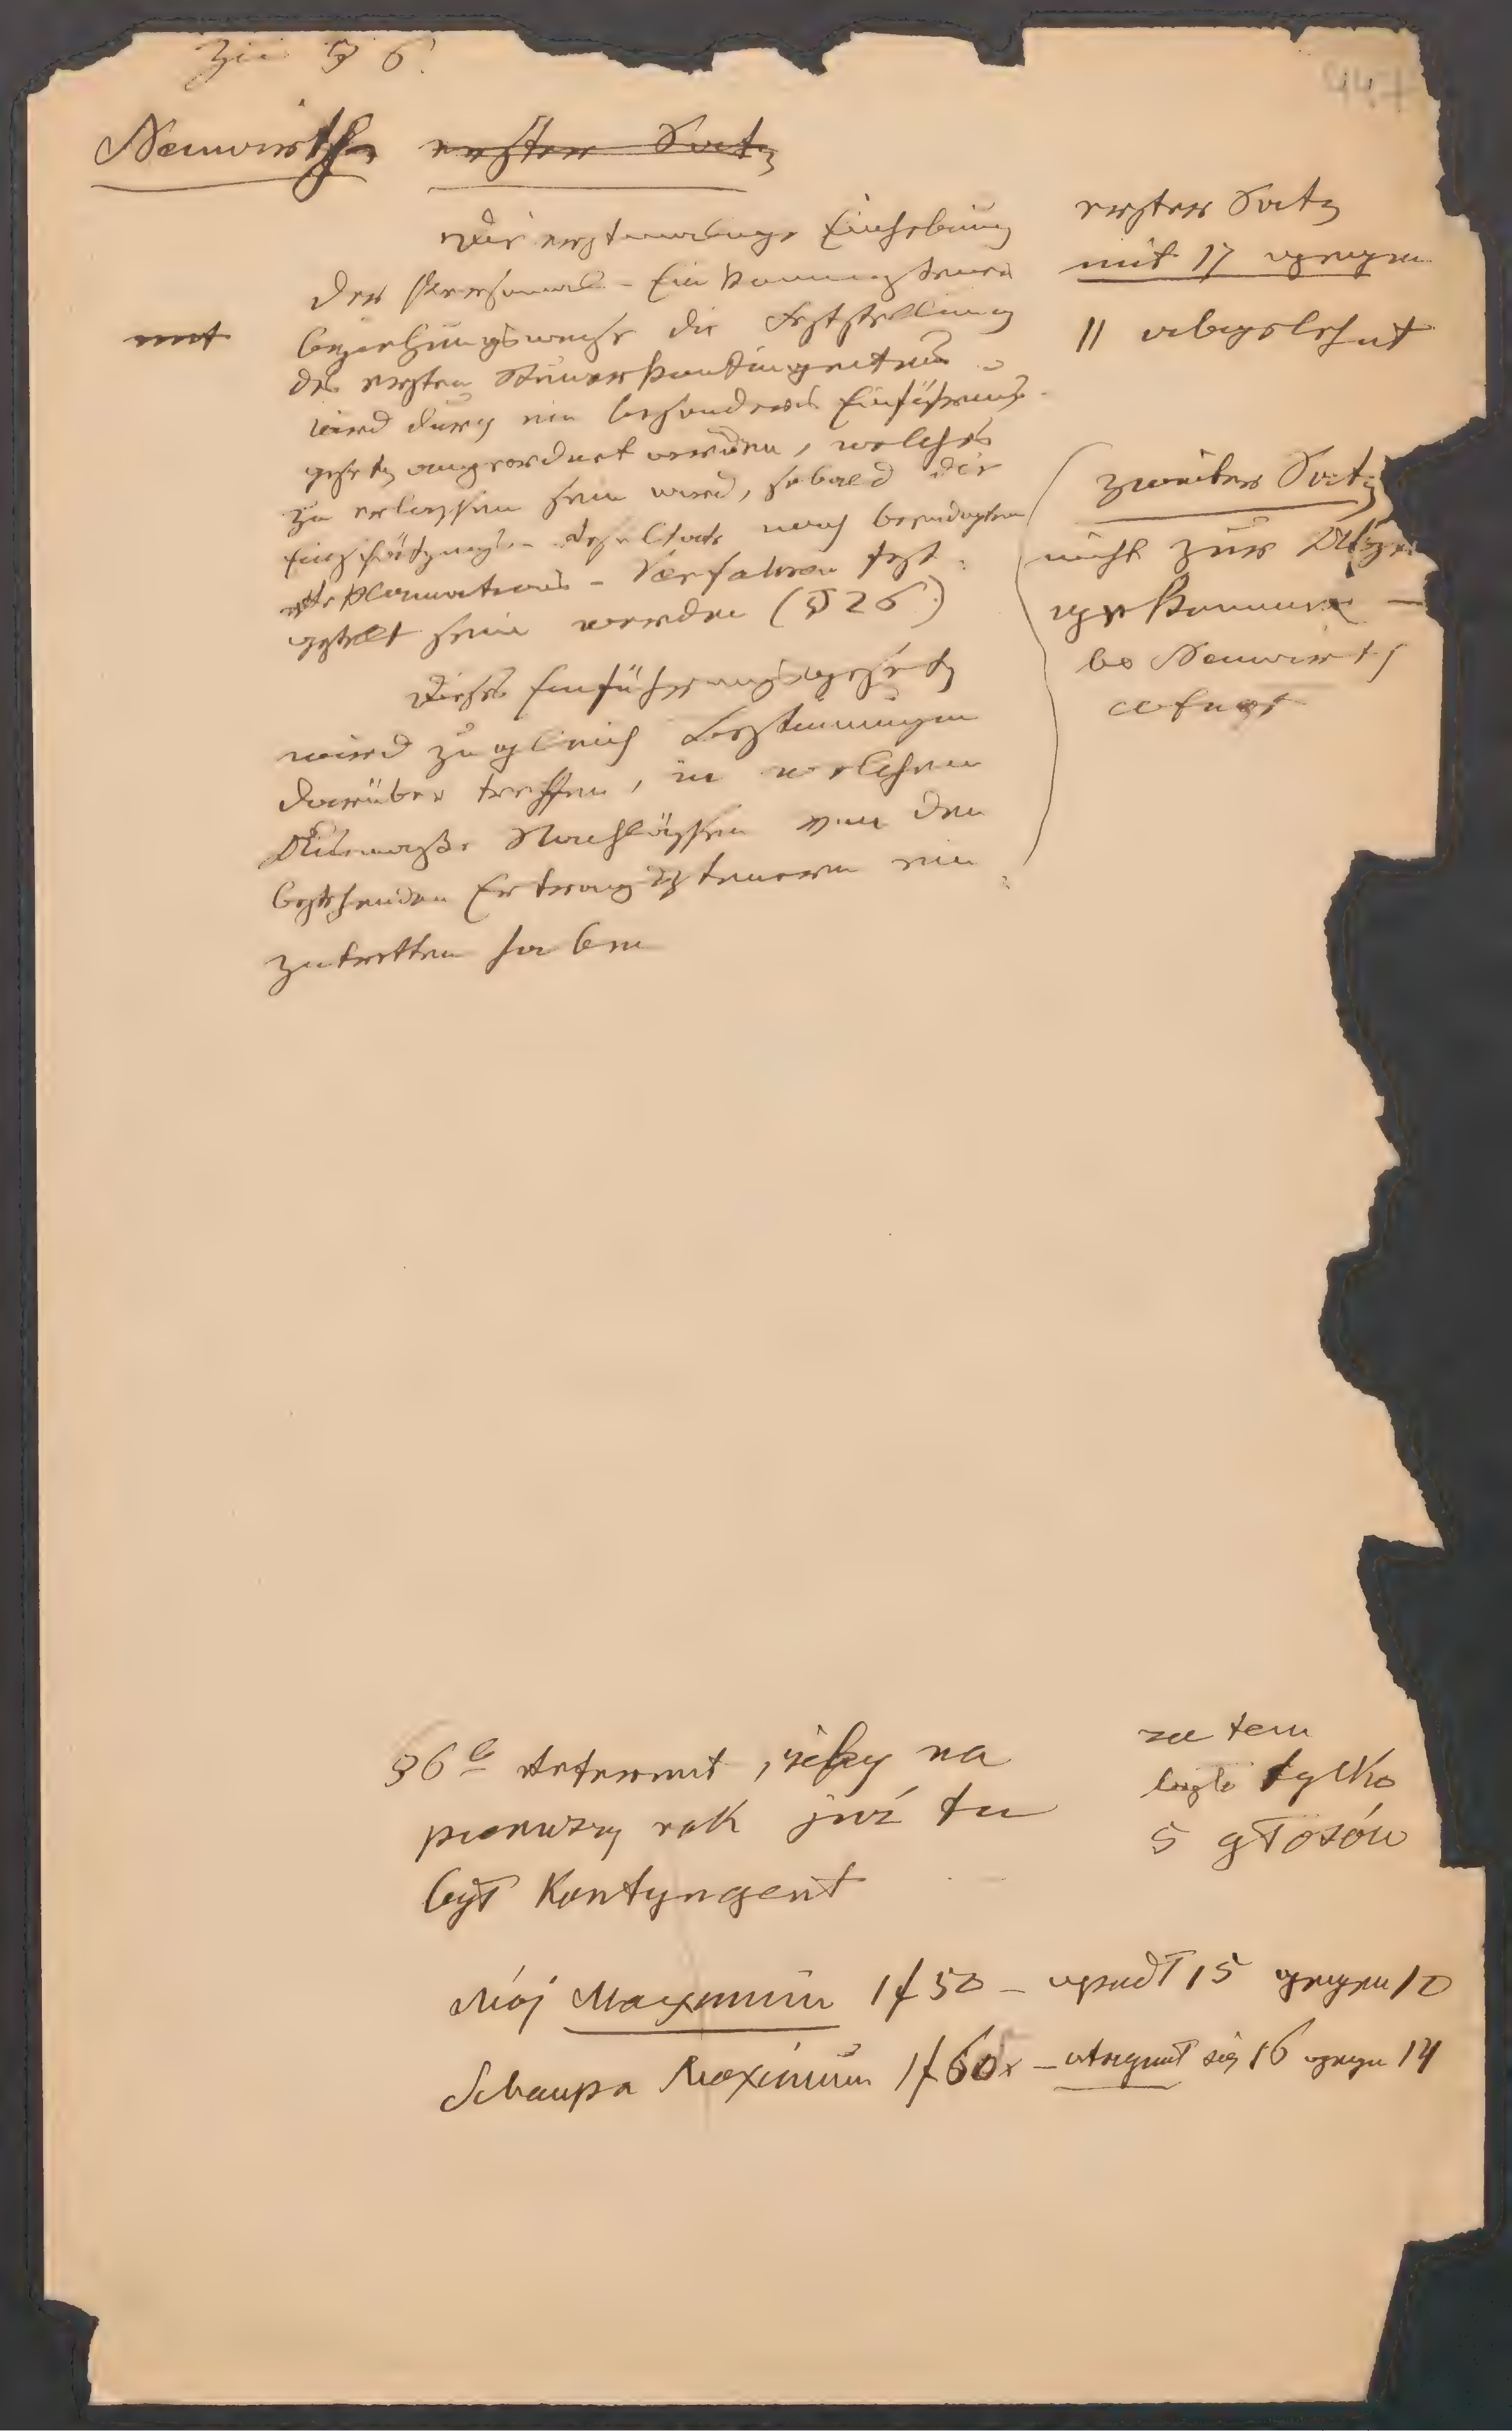 Zu § 6.
447
Neuwirth erster Satz
Die erstmalige Einhebung
der Personal-Einkommensteuer
beziehungsweise die Feststellung
des ersten Steuerkontingentes
wird durch ein besonderes Einführungs-
gesetz angeordnet werden, welches
zu erlassen sein wird, sobald die
Einschätzungs-Resultate nach beendigtem
Reklamations-Verfahren fest-
gestellt sein werden (§ 26)
Dieses Einführungsgesetz
wird zugleich Bestimmungen
darüber treffen, in welchem
Ausmaße Nachlässe von den
bestehenden Ertragssteuern ein-
zutretten haben
erster Satz
mit 17 gegen
11 abgelehnt
zweiter Satz
nicht zur Absti
gekommen —
bo Neuwirth
cofnął
§6 b Referent, żeby na
pierwszy rok już tu
był Kontyngent
za tem
było tylko
5 głosów
Mój Maximum 1f 50 – upadł 15 gegen 10
Schaupa Maximum 1f 60x – utrzymał się 16 gegen 14